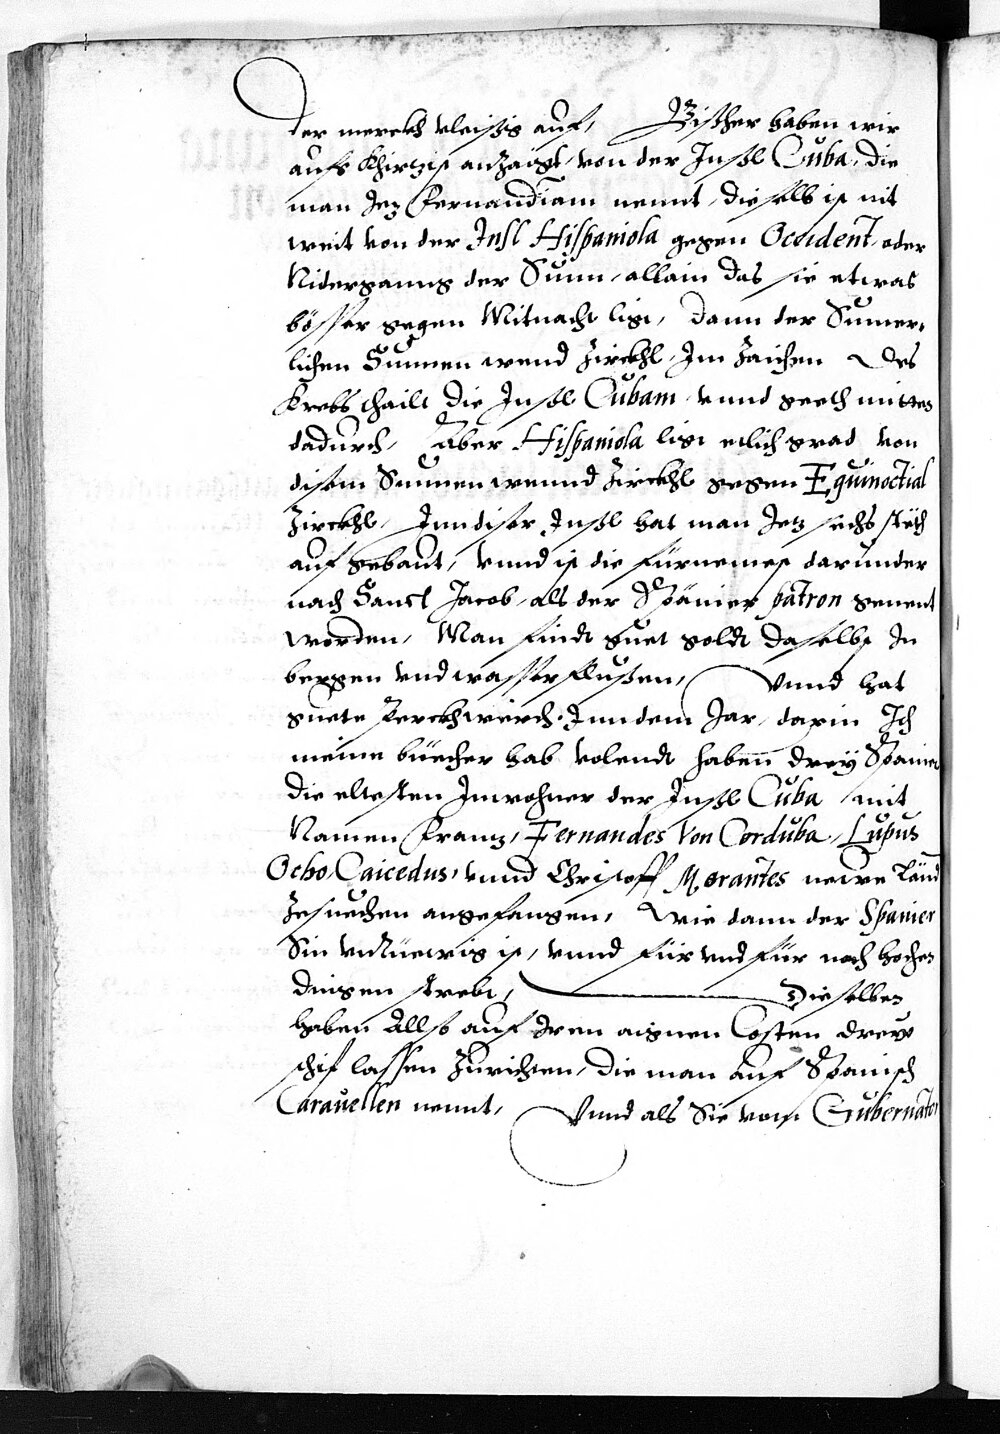 der merckh vleissig auf, Bissher haben wir
aufs khirtzist anzaigt, von der Insel Cuba, die
man Jetz Fernandiam nennt, dieselb ist nit
weit von der Insl Hispaniola gegen Occident, oder
Niderganng der Sunn, allain das sie etwas
bösser gegen Mitnacht ligt, dann der Sumer,
lichen Sunnen wend Zirckhl, Im Zaichen des
Krebs thailt die Insel Cubam, vnnd geeth mitten
dadurch, Aber Hispaniola ligt etlich grad von
disem Sunnen wennd Zirckhl gegen Equinoctial
Zirckhl, Inn diser Insel hat man Jetz sechs stëth
auf gebaut, vnnd ist die fürnemest darunder
nach Sanct Jacob, als der Spänier patron genent
worden, Man findt guet goldt daselbst In
bergen vnd wasserflussen, Vnnd hat
guete Perckhwerch. Inn dem Jar, darin Ich
meine büecher hab volendt haben drey Spanier
die eltesten Inwohner der Insel Cuba mit
Namen Frantz, Fernandes von Corduba, Lupus
Ocho, Caicedus, vnnd Christoff Morantes newe Länd
Zesuechen angefangen, Wie dann der Spanier
Sin vnrüewig ist, vnnd für vnd für nach hochen
dingen strebt, Dieselben
haben Allso auf Iren aignen Costen drey
schif lassen Zurichten, die man auf Spanisch
Carauellen nennt, Vnnd als Sie vom Gubernator